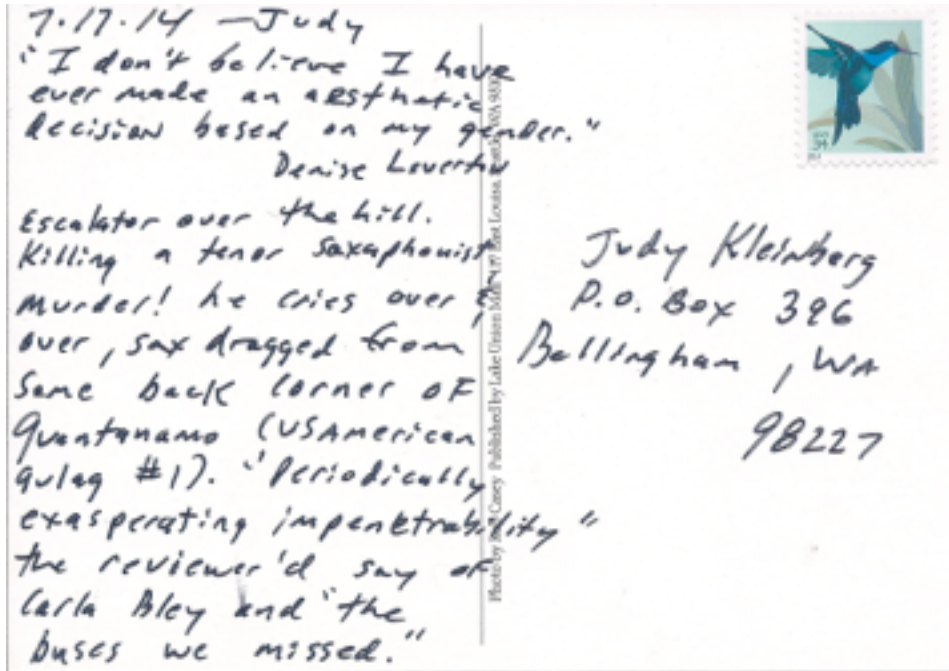 7.17.14 —Judy
"I don't believe I have
ever made an aesthetic
decision based on my gender."
Denise Levertov
Escalator over the hill.
Killing a tenor saxaphonist
murder! he cries over &
over, sax dragged from
some back corner of
Guantanamo (USAmerican
gulag #1). "Periodically
exasperating impenetrability"
the reviewer'd say of
Carla Bley and "the
buses we missed."
Photo by Casey Published by Lake Union Mail East Louisa, WA
34
Judy Kleinberg
P.O. Box 396
Bellingham, WA
98227